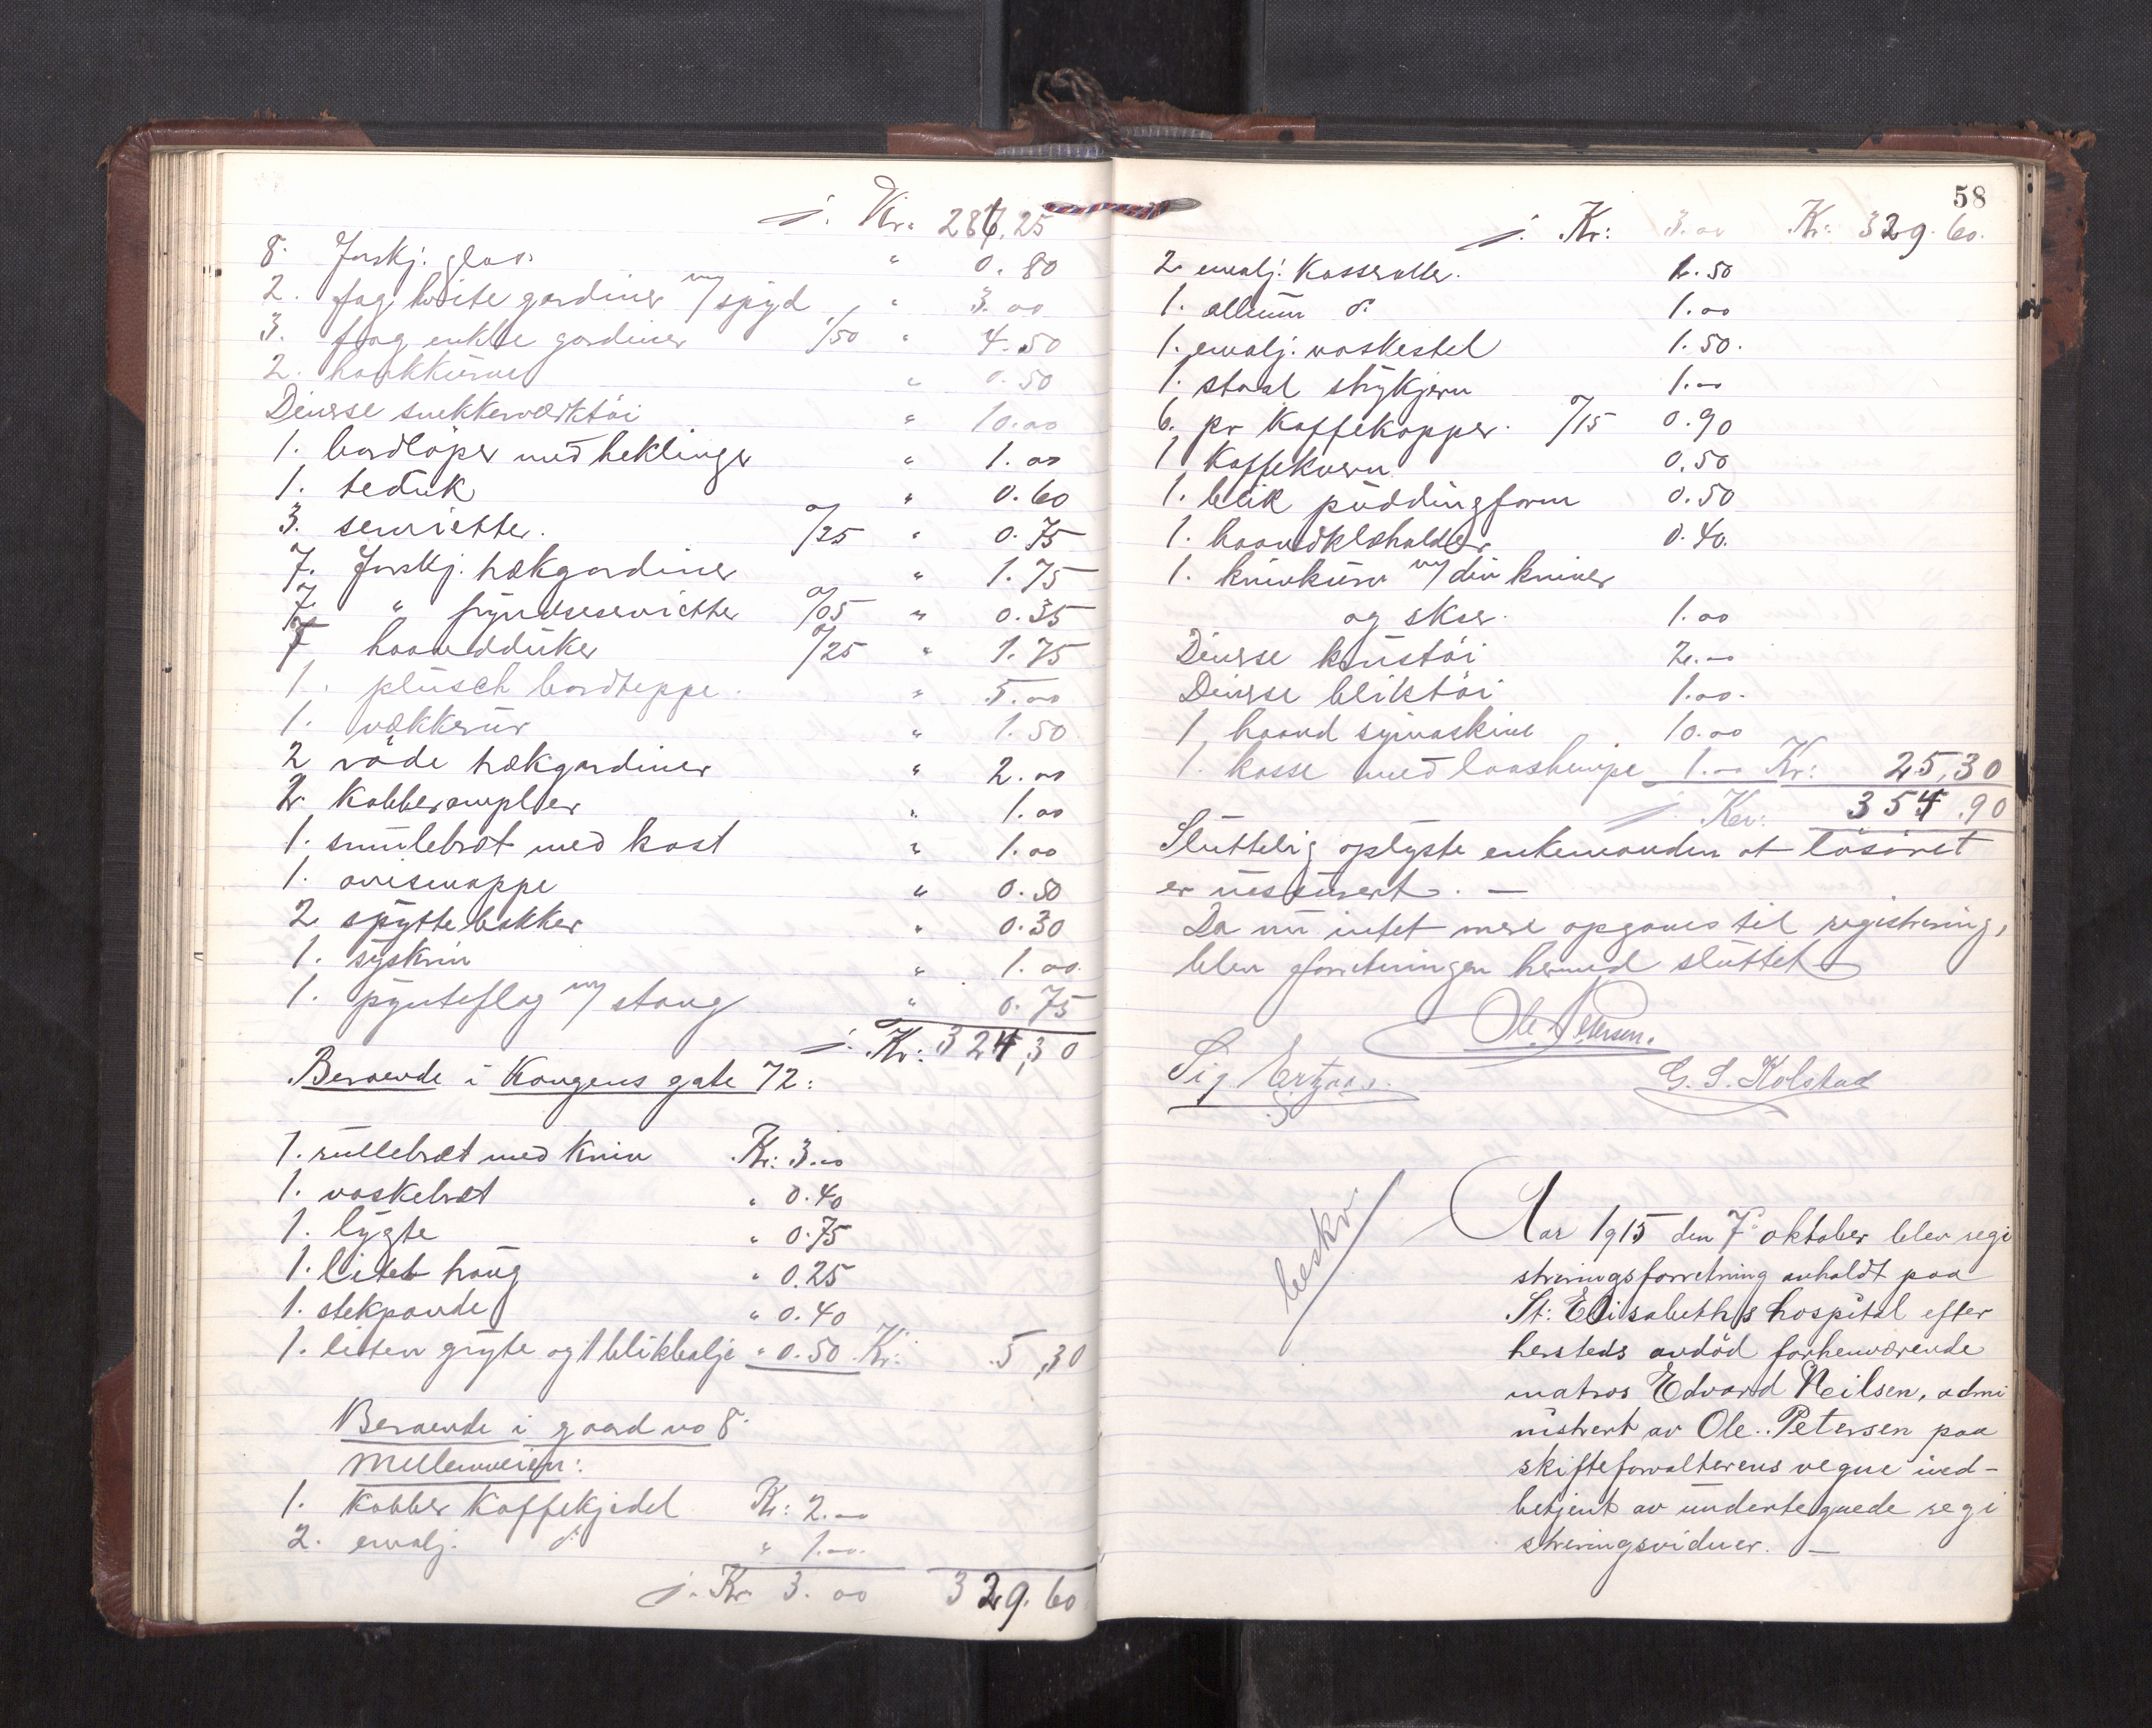 j. Kr. 286.25
8. forskj. glas. " 0.80
2. fag hvite gardiner m/ spyd " 3.00
3. fag enkle gardiner 1/50 " 4.50
2. hankkurve " 0.50
Diverse snekkerværktöi " 10.00
1. bordlöper med heklinger " 1.00
1. teduk " 0.60
3. servietter. a/25 " 0.75
7. forskj. trækgardiner " 1.75
7. " frynseservietter a/05 " 0.35
7 haandduker a/25 " 1.75
1. plüsch bordteppe. " 5.00
1. vækkerur " 1.50
2 röde trækgardiner " 2.00
2. Kobberampler " 1.00
1. smulebræt med kost " 1.00
1. avismappe " 0.50
2 spyttebakker " 0.30
1. syskrin " 1.00
1. pynteflag m/ stang " 0.75
j. Kr: 324,30
Beroende i Kongens gate 72:
1. rullebræt med kniv Kr: 3.00
1. vaskebræt " 0.40
1. lygte " 0.75
1. litet traug " 0.25
1. stekpande " 0.40
1. liten gryte og 1 blikbalje " 0.50 Kr: 5,30
Beroende i gaard no 8
Mellemveien:
1. Kobber Kaffekjedel Kr: 2.00
2. emalj. do " 1.00
j. Kr. 3.00 329.60
58
j. Kr: 3.00 Kr: 329.60.
2 emalj: Kasseroller. 1.50
1. allum do 1.00
1. emalj. vaskestel 1.50.
1. staal strykjern 1.00
6. pr Kaffekopper. a/15 0.90
1. Kaffekvern 0.50
1. blik puddingform 0.50
1. haandklæholder 0.40.
1. knivkurv m/ div kniver
og skeer. 1.00
Diverse knustöi 2.00
Diverse bliktöi 1.00.
1. haand symaskine 10.00
1. kasse med laashempe 1.00 Kr: 25,30
j. Kr: 354.90
Sluttelig oplyste enkemanden at lösöret
er uassurert. —
Da nu intet mere opgaves til registrering,
blev forretningen hermed sluttet
Ole Petersen.
Sig. Ertzaas. G. S. Kolstad
beskr
Aar 1915 den 7de oktober blev regi
streringsforretning avholdt paa
St: Elisabeths hospital efter
hersteds avdöd forhenværende
matros Edvard Neilsen, admi
nistrert av Ole. Petersen paa
skifteforvalterens vegne med-
betjent av undertegnede regi
streringsvidner. —